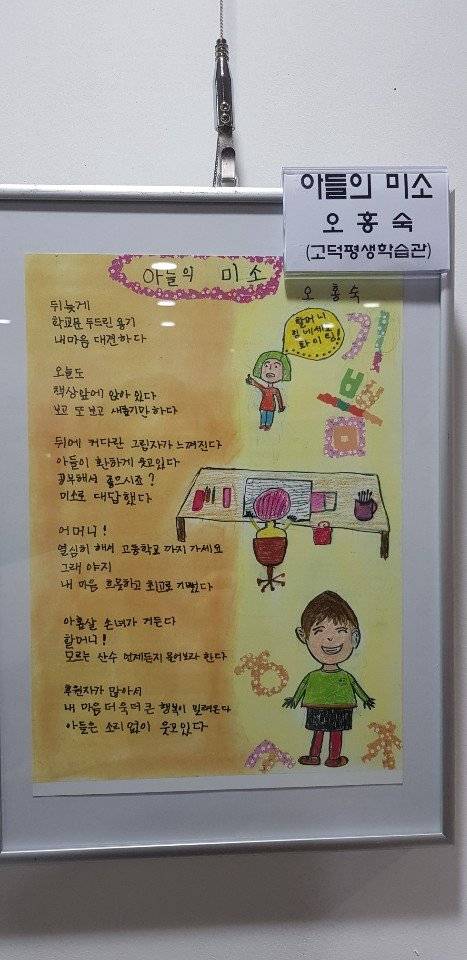 아들의 미소
오홍숙
(고덕평생학습관)
아들의 미소
오홍숙
뒤늦게
학교문 두드린 용기
내마음 대견하다
오늘도
책상앞에 앉아 있다
보고 또 보고 새롭기만 하다
뒤에 커다란 그림자가 느껴진다
아들이 환하게 웃고있다
공부해서 좋으시죠?
미소로 대답했다
어머니!
열심히 해서 고등학교 까지 가세요
그래 야지
내 마음 흐뭇하고 최고로 기뻤다
아홉살 손녀가 거든다
할머니!
모르는 산수 언제든지 물어보라 한다
후원자가 많아서
내 마음 더욱 더 큰 행복이 밀려온다
아들은 소리 없이 웃고있다
할머니
힘내세요
화이팅!
기
쁨